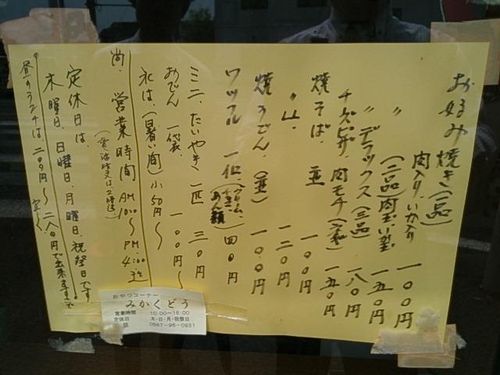 お好み焼き(一品)
肉入り、いか入り 一〇〇円
〃 (二品)肉玉い玉 一五〇円
〃 デラックス(三品) 一八〇円
チーズピザ、肉モチ 一五〇円
焼そば 並 一〇〇円
〃 大 一二〇円
焼うどん (並) 一〇〇円
ワッフル 一個 四〇円
ミニたいやき 一匹 三〇円
おでん 一〇〇円〜
氷は(暑い間)小50円〜
尚、営業時間 AM 10:00〜PM 4:00迄
定休日は
木曜日、日曜日、月曜日、祝祭日です
昼のランチは二〇〇円〜二八〇円で出来ます
おやつコーナー
みかくどう
営業時間 10:00〜16:00
定休日 木・日・月・祝祭日
0567-95-0931